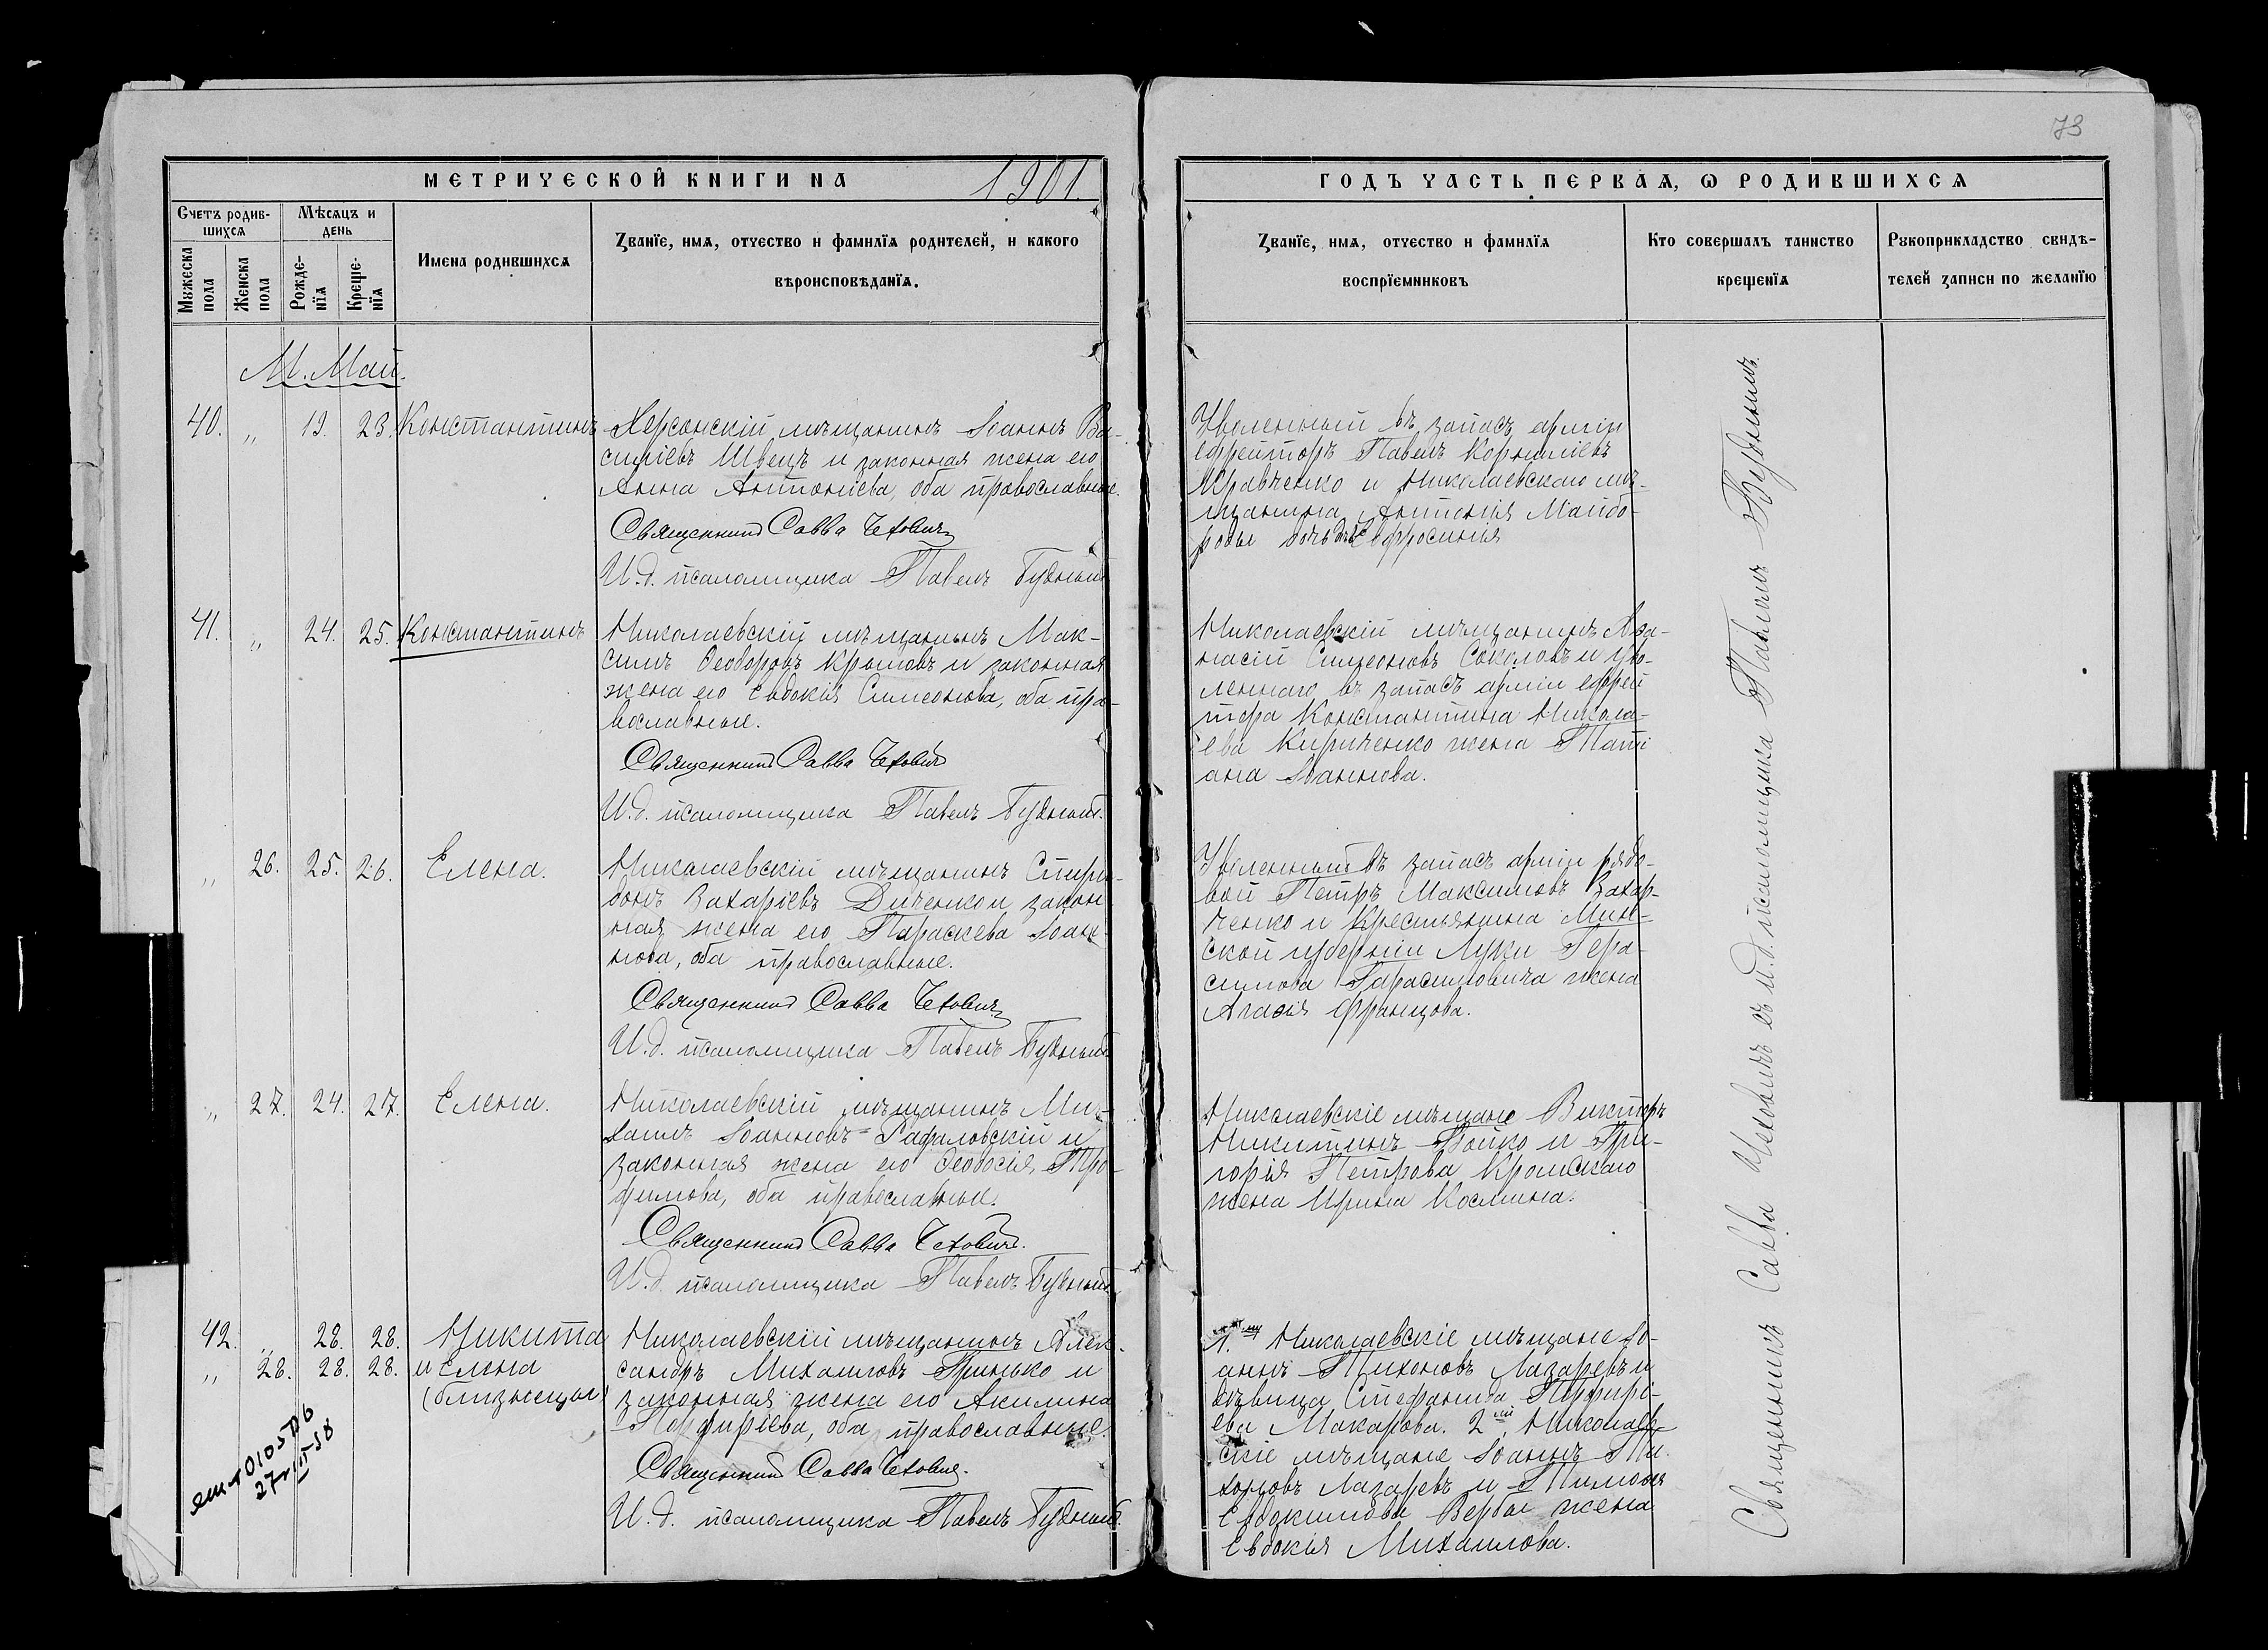 73
МЕТРИЧЕСКОЙ КНИГИ НА 1901.
ГОДЪ ЧАСТЬ ПЕРВАѦ, Ѡ РОДИВШИХСѦ
Счетъ родив-
шихсѧ
Мѣсѧцъ и
день
Мужеска
пола
Женска
пола
Рожде-
нїѧ
Креще-
нїѧ
Имена родившихсѧ
Званїе, имѧ, отчество и фамилїѧ родителей, и какого
вѣроисповѣданїѧ.
Званїе, имѧ, отчество и фамилїѧ
воспрїемниковъ
Кто совершалъ таинство
крещенїѧ
Рукоприкладство свидѣ-
телей записи по желанїю
М. Май.
40. " 19. 23. Константинъ
Херсонскій мѣщанинъ Іоаннъ Ва-
силіевъ Швецъ и законная жена его
Анна Антоніева, оба православные.
Священникъ Савва Чеховичъ
И.д. псаломщика Павелъ Будный
Уволенный въ запасъ арміи
ефрейторъ Павелъ Корниліевъ
Кравченко и Николаевскаго мѣ-
щанина Антонія Майбо-
роды дочь Евфросинія
41. " 24. 25. Константинъ
Николаевскій мѣщанинъ Мак-
симъ Ѳеодоровъ Крымовъ и законная
жена его Евдокія Симеонова, оба пра-
вославные.
Священникъ Савва Чеховичъ
И.д. псаломщика Павелъ Будный.
Николаевскій мѣщанинъ Аѳа-
насій Симеоновъ Соколовъ и уво-
леннаго въ запасъ арміи ефрей
тора Константина Никола-
ева Кириченко жена Таті
ана Іоаннова.
" 26. 25. 26. Елена.
Николаевскій мѣщанинъ Спири-
донъ Захаріевъ Диченко и закон
ная жена его Параскева Іоан-
нова, оба православные.
Священникъ Савва Чеховичъ
И.д. псаломщика Павелъ Будный
Уволенный въ запасъ арміи рядо-
вой Петръ Максимовъ Захар-
ченко и крестьянина Мин-
ской губерніи Луки Гера-
симова Гарасимовича жена
Агафія Францова.
" 27. 24. 27. Елена.
Николаевскій мѣщанинъ Ми-
хаилъ Іоанновъ Рафаловскій и
законная жена его Ѳеодосія Тро-
фимова, оба православные.
Священникъ Савва Чеховичъ.
И.д. псаломщика Павелъ Будный
Николаевскіе мѣщане Викторъ
Никитинъ Бойко и Гри-
горія Петрова Кромскаго
жена Ирина Космина.
42. " 28. 28. Никита
" 28. 28. 28. и Елена
(близнецы)
Николаевскій мѣщанинъ Алек-
сандръ Михаиловъ Гринько и
законная жена его Акилина
Порфиріева, оба православные.
Священникъ Савва Чеховичъ.
И.д. псаломщика Павелъ Будный.
1. Николаевскіе мѣщане Іо-
аннъ Тихоновъ Лазаревъ и
дѣвица Стефанида Порфирі-
ева Макарова. 2. Николаев-
скіе мѣщане Іоаннъ Ти-
хоновъ Лазаревъ и Тимоѳея
Евдокимова Вербы жена
Евдокія Михаилова.
Священникъ Савва Чеховичъ съ и.д. псаломщика Павломъ Буднымъ.